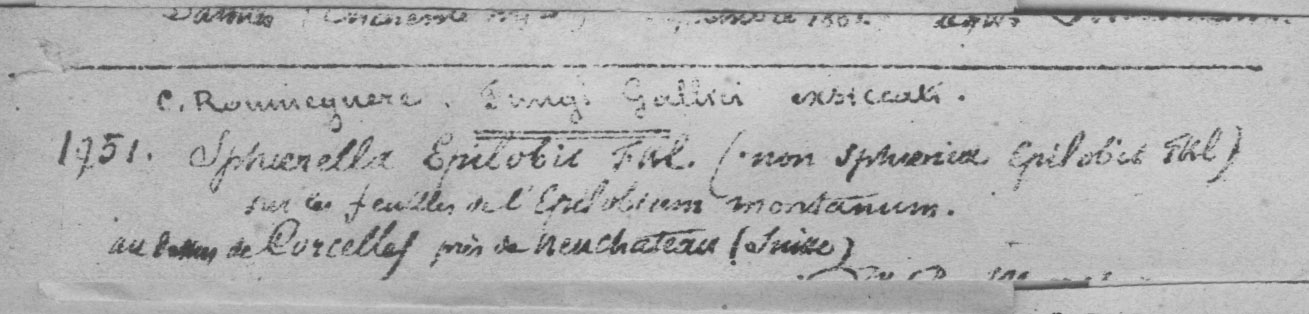 C. Roumeguere. Fungi Gallici exsiccati.
1951. Sphaerella Epilobii Fkl. (non Sphaeria Epilobii Fkl)
sur les feuilles de l'Epilobium montanum.
au dessus de Corcelles près de Neuchateau (Suisse)